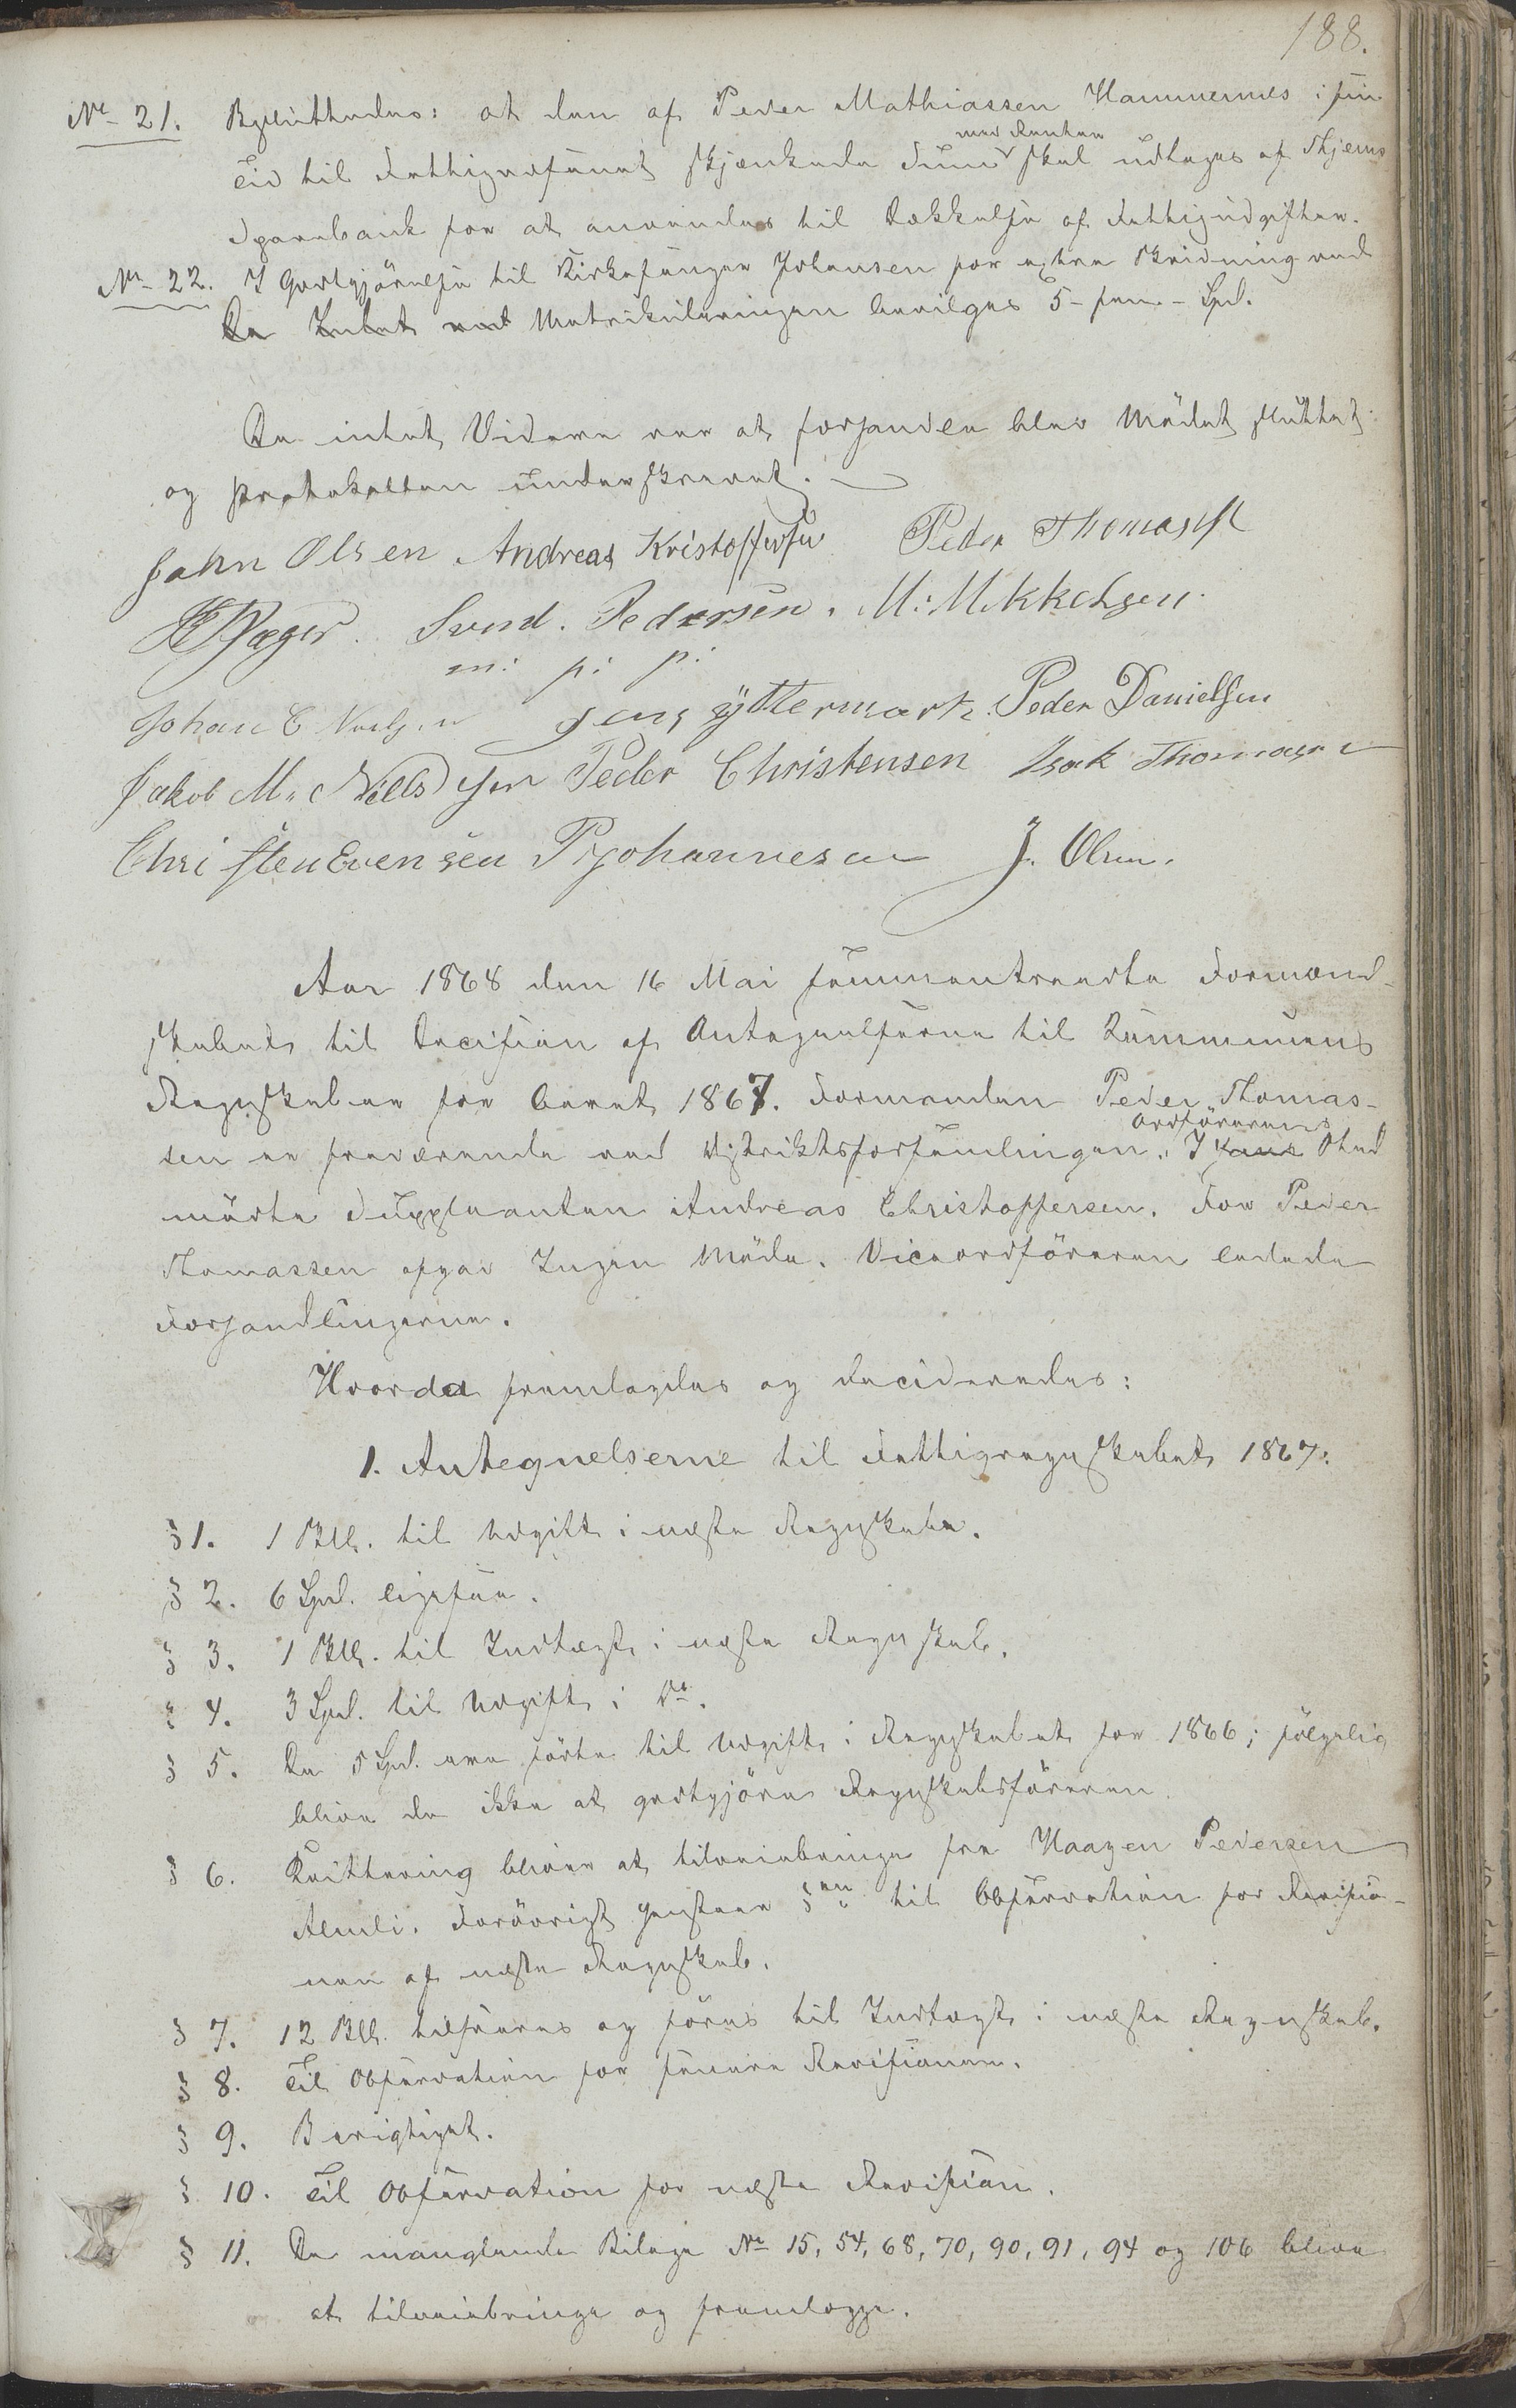 188.
No 21. Besluttedes: at den af Peder Mathiassen Hammernes i sin
Tid til Fattigvæsenet skjænkede Sum med Renter skal udtages af Skjerns
Sparebank for at anvendes til Dækkelse af Fattigudgifter.
No 22. I Godtgjörelse til Kirkesanger Johansen for extra Skrivning ved
Da Intet ved Matrikuleringen bevilges 5 - fem - Spd.
Da intet Videre var at forhandle blev Mödet sluttet
og Protokollen underskrevet. —
John Olsen Andreas Kristoffersen Peder Thomass
Jæger. Svend. Pedersen. M. Mikkelsen.
m: p: p:
Johan C Nielsen Jens Yttermark. Peder Danielsen
Jakob M. Nielsen Peder Christensen Isak Thomasen
Christen Evensen P Johannesen J. Olsen.
Aar 1868 den 16 Mai sammentraadte Formand-
skabet til Decision af Antegnelserne til Kommunens
Regnskaber for Aaret 1867. Formanden Peder Thomas-
sen er fraværende ved Distriktsforsamlingen. I hans Ordförerens Sted
mödte Suppleanten Andreas Christoffersen. For Peder
Thomassen afgav Ingen Möde. Viceordföreren ledede
Forhandlingerne.
Hvorda fremlagdes og decideredes:
1. Antegnelserne til Fattigregnskabet 1867:
§ 1. 1 Sk. til Udgift i næste Regnskab.
§ 2. 6 Spd. ligesaa.
§ 3. 1 Sk. til Indtægt i næste Regnskab.
§ 4. 3 Spd. til Udgift i Do.
§ 5. De 5 Spd. ere förte til Udgift i Regnskabet for 1866; fölgelig
blive de ikke at godtgjöre Regnskabsföreren.
§ 6. Kvittering bliver at tilveiebringe fra Haagen Pedersen
Almli. Forövrigt henstaar §en til Observation for Revisio-
nen af næste Regnskab.
§ 7. 12 Sk. tilsvares og föres til Indtægt i næste Regnskab.
§ 8. Til Observation for senere Revisioner.
§ 9. Berigtiget.
§ 10. Til Observation for næste Revision.
§ 11. De manglende Bilage No 15, 54, 68, 70, 90, 91, 94 og 106 blive
at tilveiebringe og fremlægge.